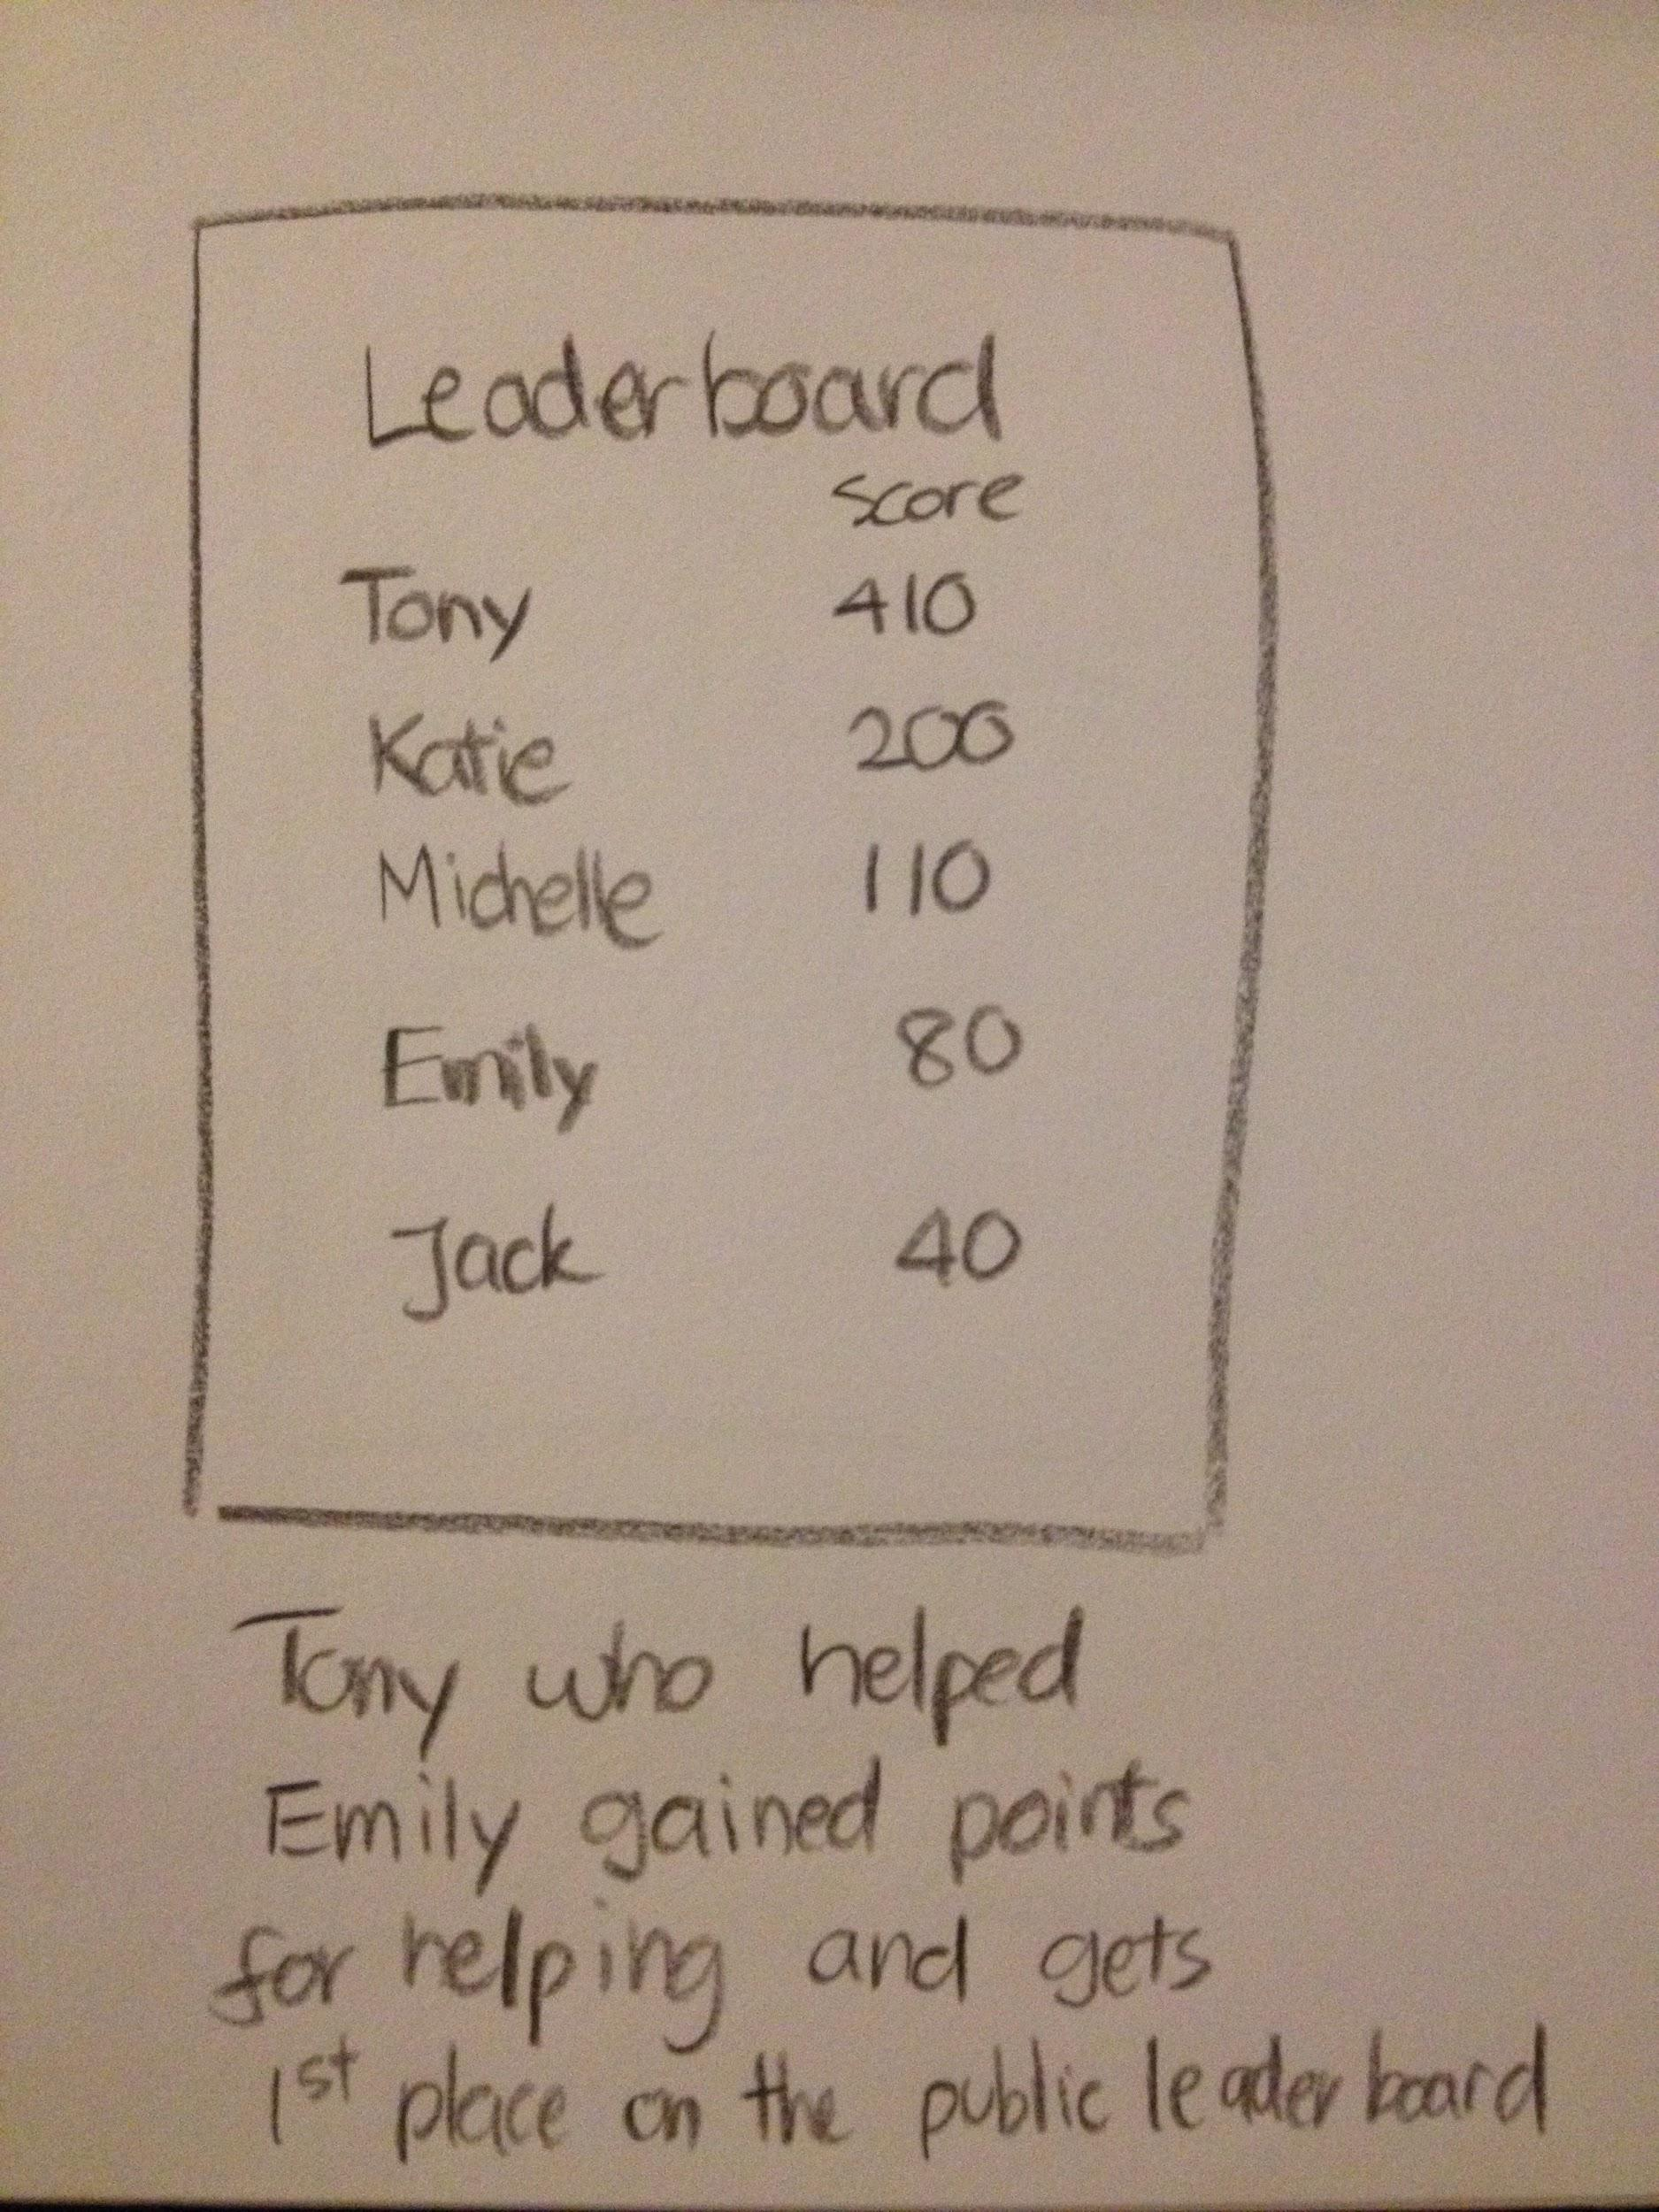 Leaderboard
score
Tony 410
Katie 200
Michelle 110
Emily 80
Jack 40
Tony who helped
Emily gained points
for helping and gets
1st place on the public leaderboard